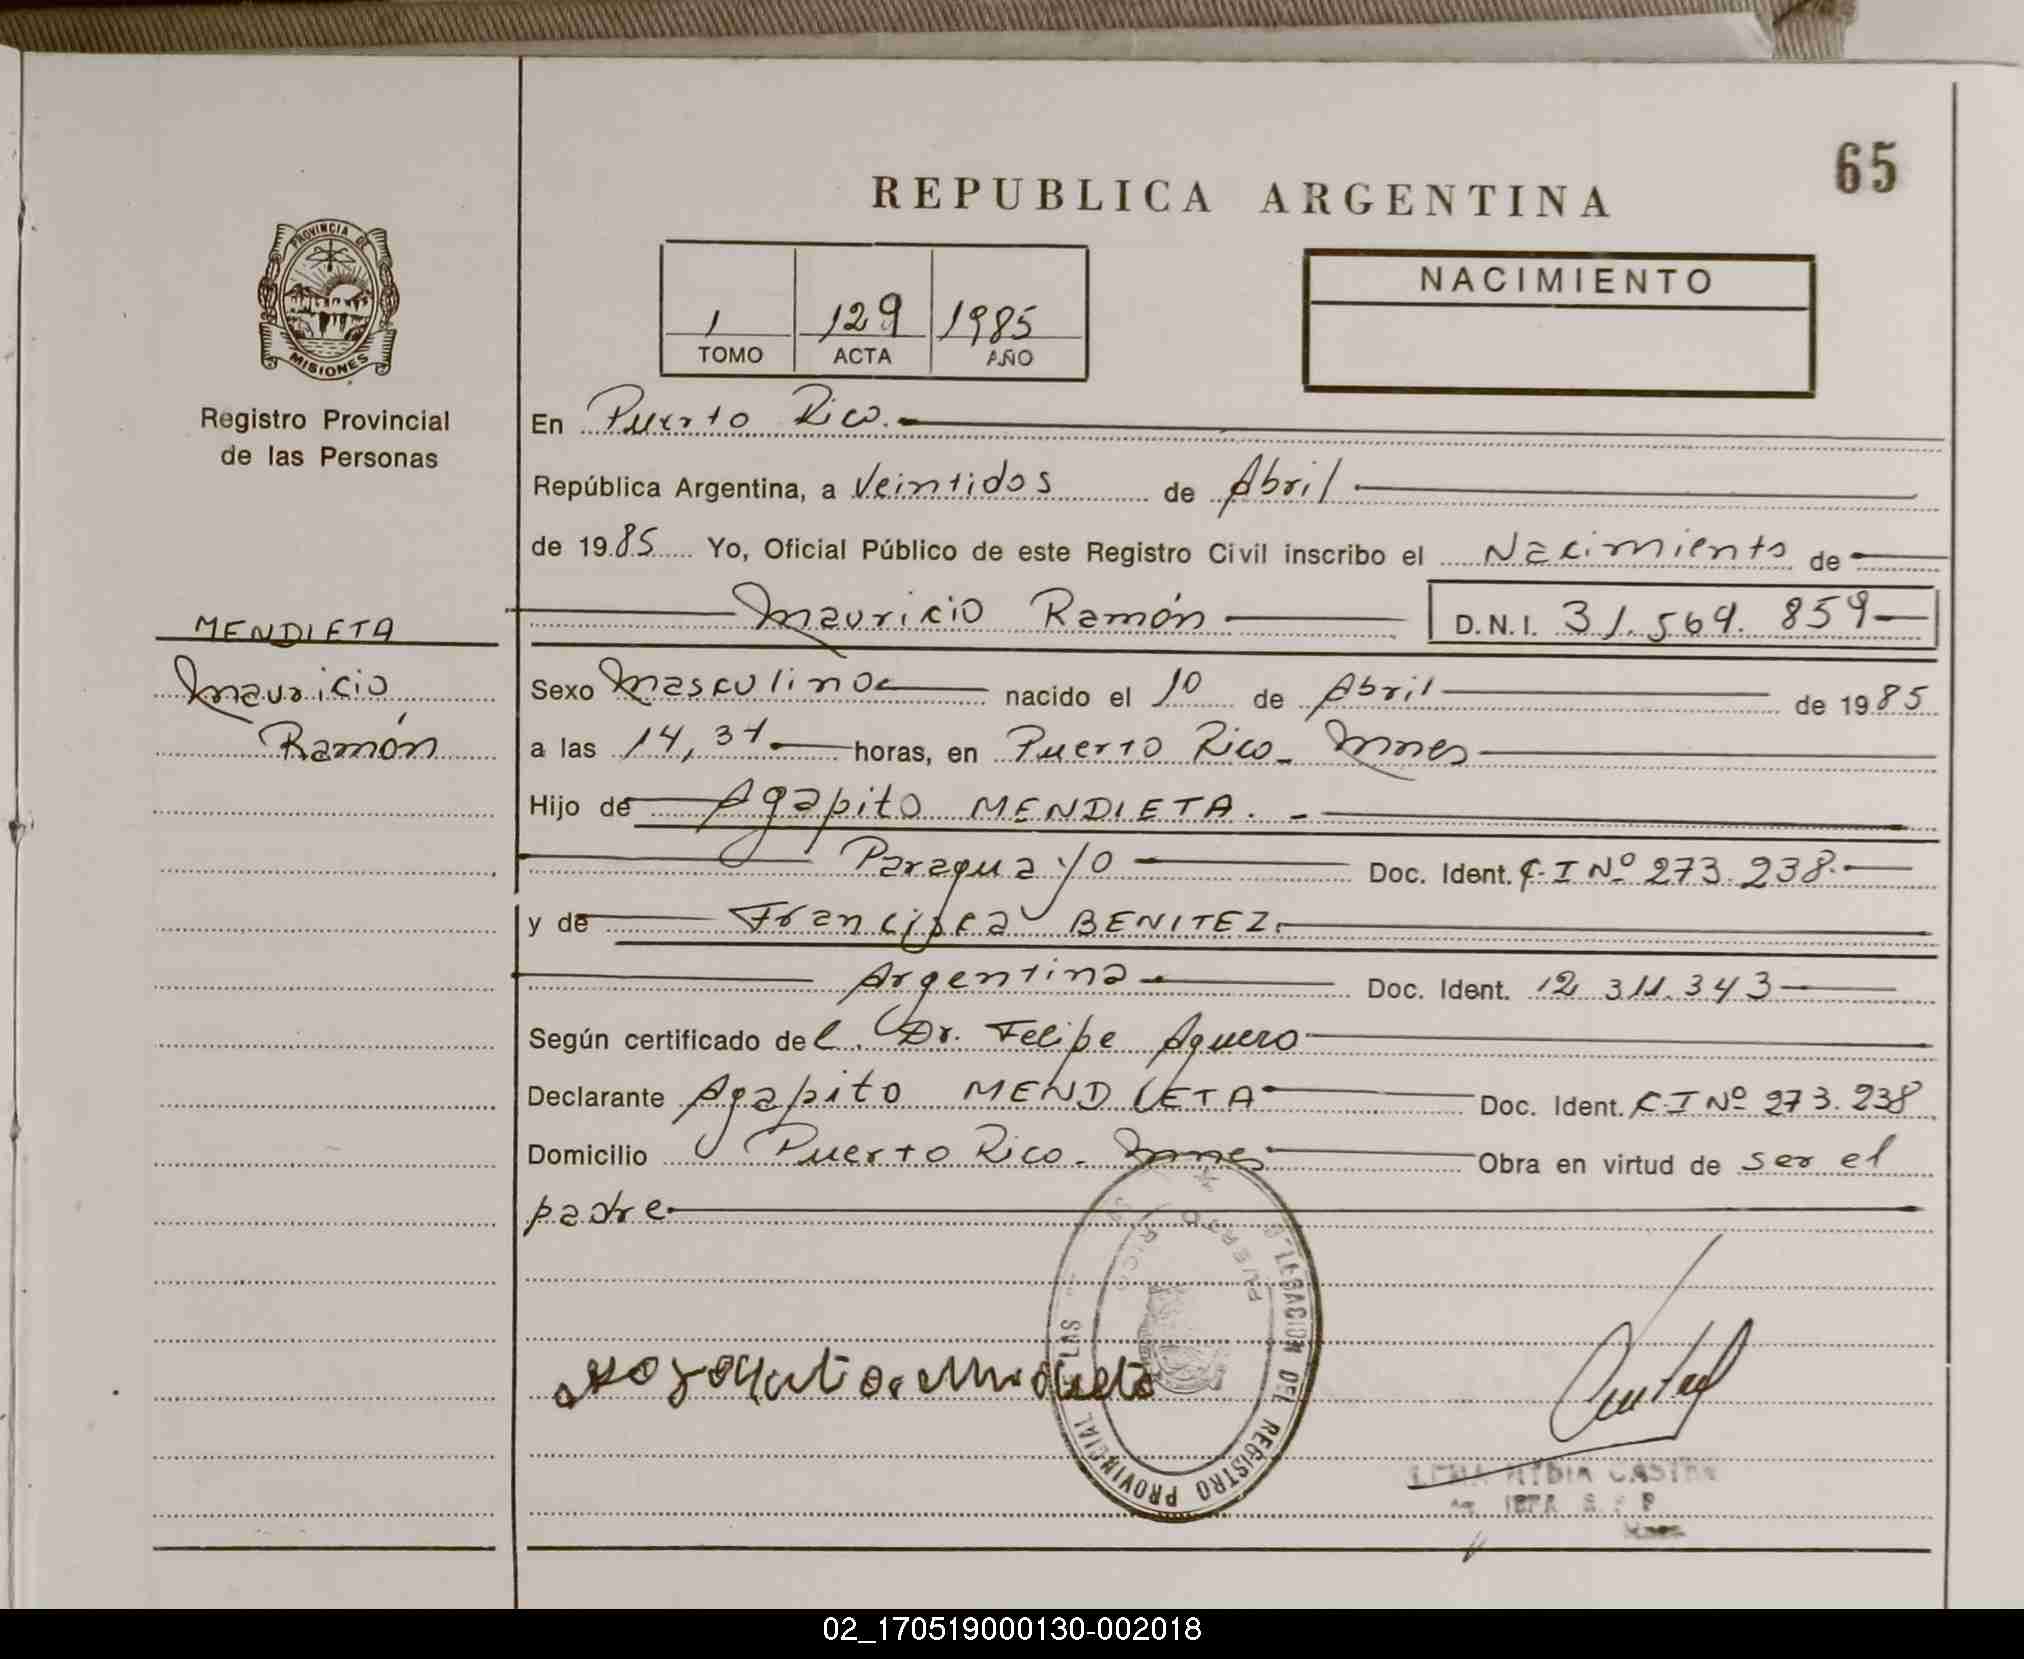 65
REPUBLICA ARGENTINA
PROVINCIA DE
MISIONES
Registro Provincial
de las Personas
1 129 1985
TOMO ACTA AÑO
NACIMIENTO
En Puerto Rico.
República Argentina, a Veintidos de Abril
de 1985 Yo, Oficial Público de este Registro Civil inscribo el Nacimiento de
Mauricio Ramón D.N.I. 31.569.859
MENDIETA
Mauricio
Ramón
Sexo Masculino nacido el 10 de Abril de 1985
a las 14,31 horas, en Puerto Rico - Mnes
Hijo de Agapito MENDIETA. -
Paraguayo Doc. Ident. C.I Nº 273.238.
y de Francisca BENITEZ.
Argentina Doc. Ident. 12 311.343
Según certificado del. Dr. Felipe Aguero
Declarante Agapito MENDIETA Doc. Ident. C.I Nº 273.238
Domicilio Puerto Rico - Mnes Obra en virtud de ser el
padre
DELEGACION DEL REGISTRO PROVINCIAL LAS
PUERTO RICO
CASTRO
02_170519000130-002018